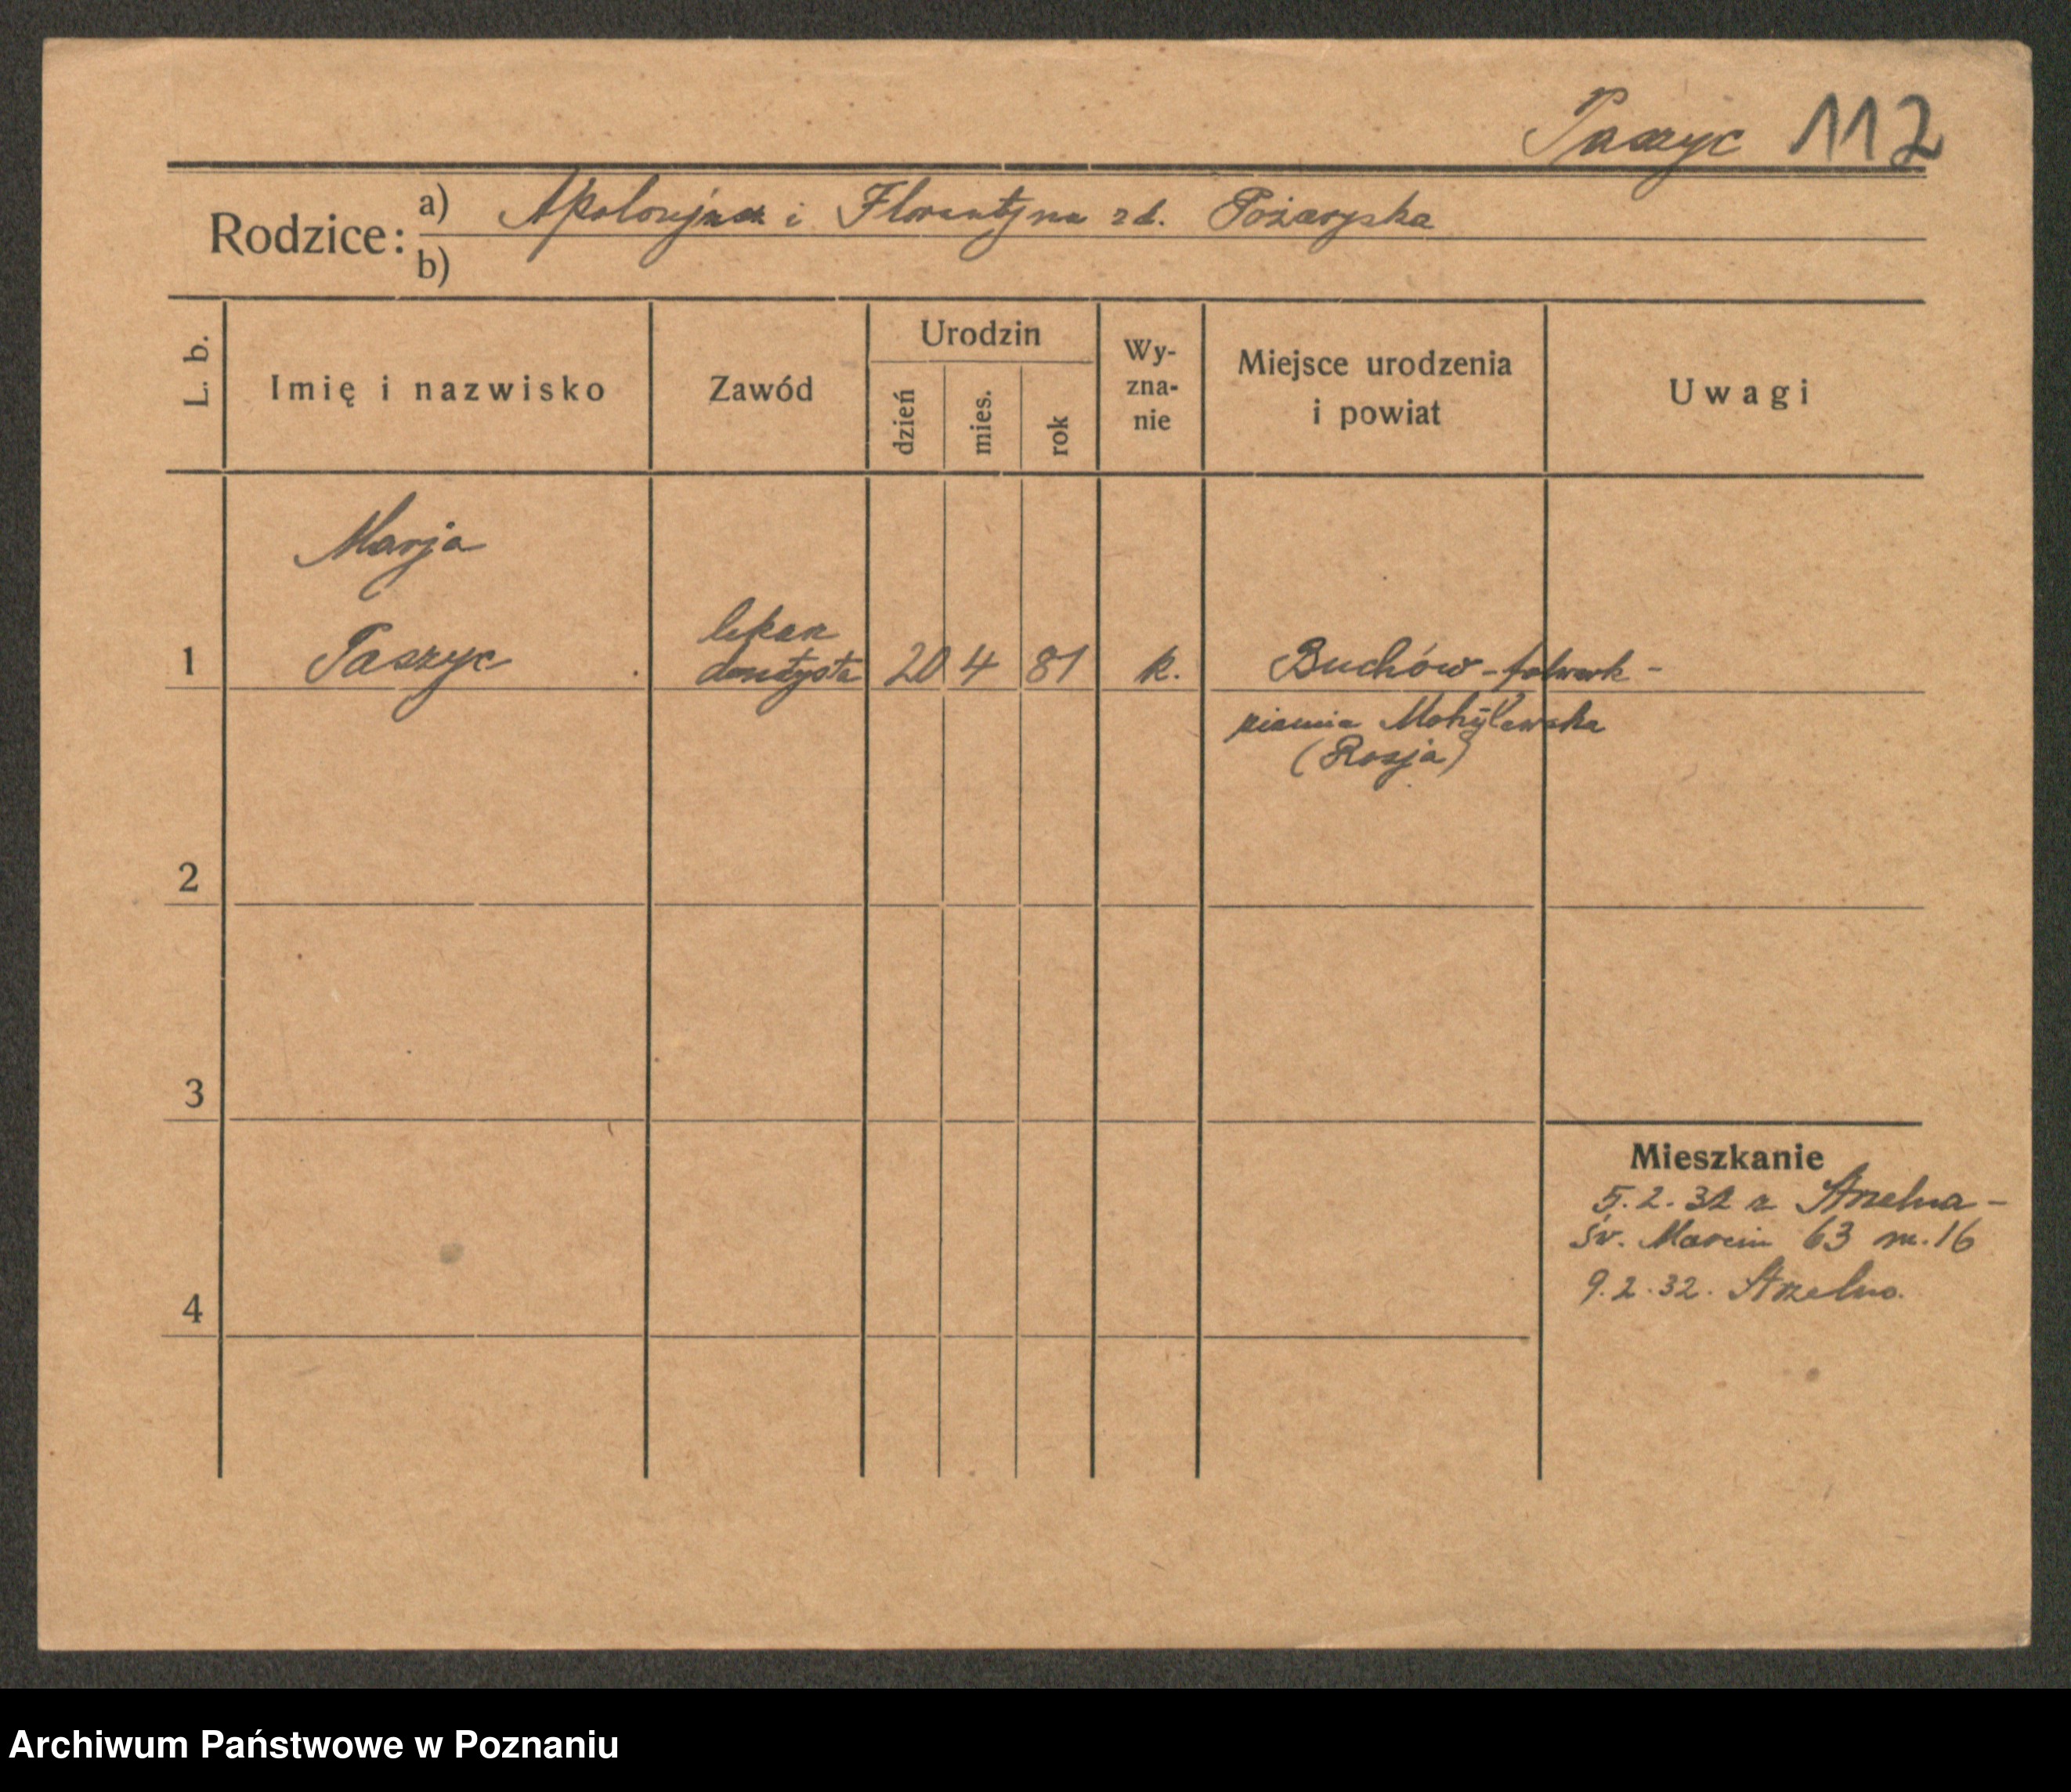 Paszyc 112
Rodzice: a) Apolonjusz i Florentyna zd. Pożaryska
b)
L. b.
Imię i nazwisko
Zawód
Urodzin
dzień
mies.
rok
Wy-
zna-
nie
Miejsce urodzenia
i powiat
Uwagi
Marja
1 Paszyc lekarz
dentysta 20 4 81 k. Buchów - folwark -
ziemia Mohylewska
(Rosja)
2
3
4
Mieszkanie
5.2.32 z Strzelna -
św. Marcin 63 m. 16
9.2.32. Strzelno.
Archiwum Państwowe w Poznaniu